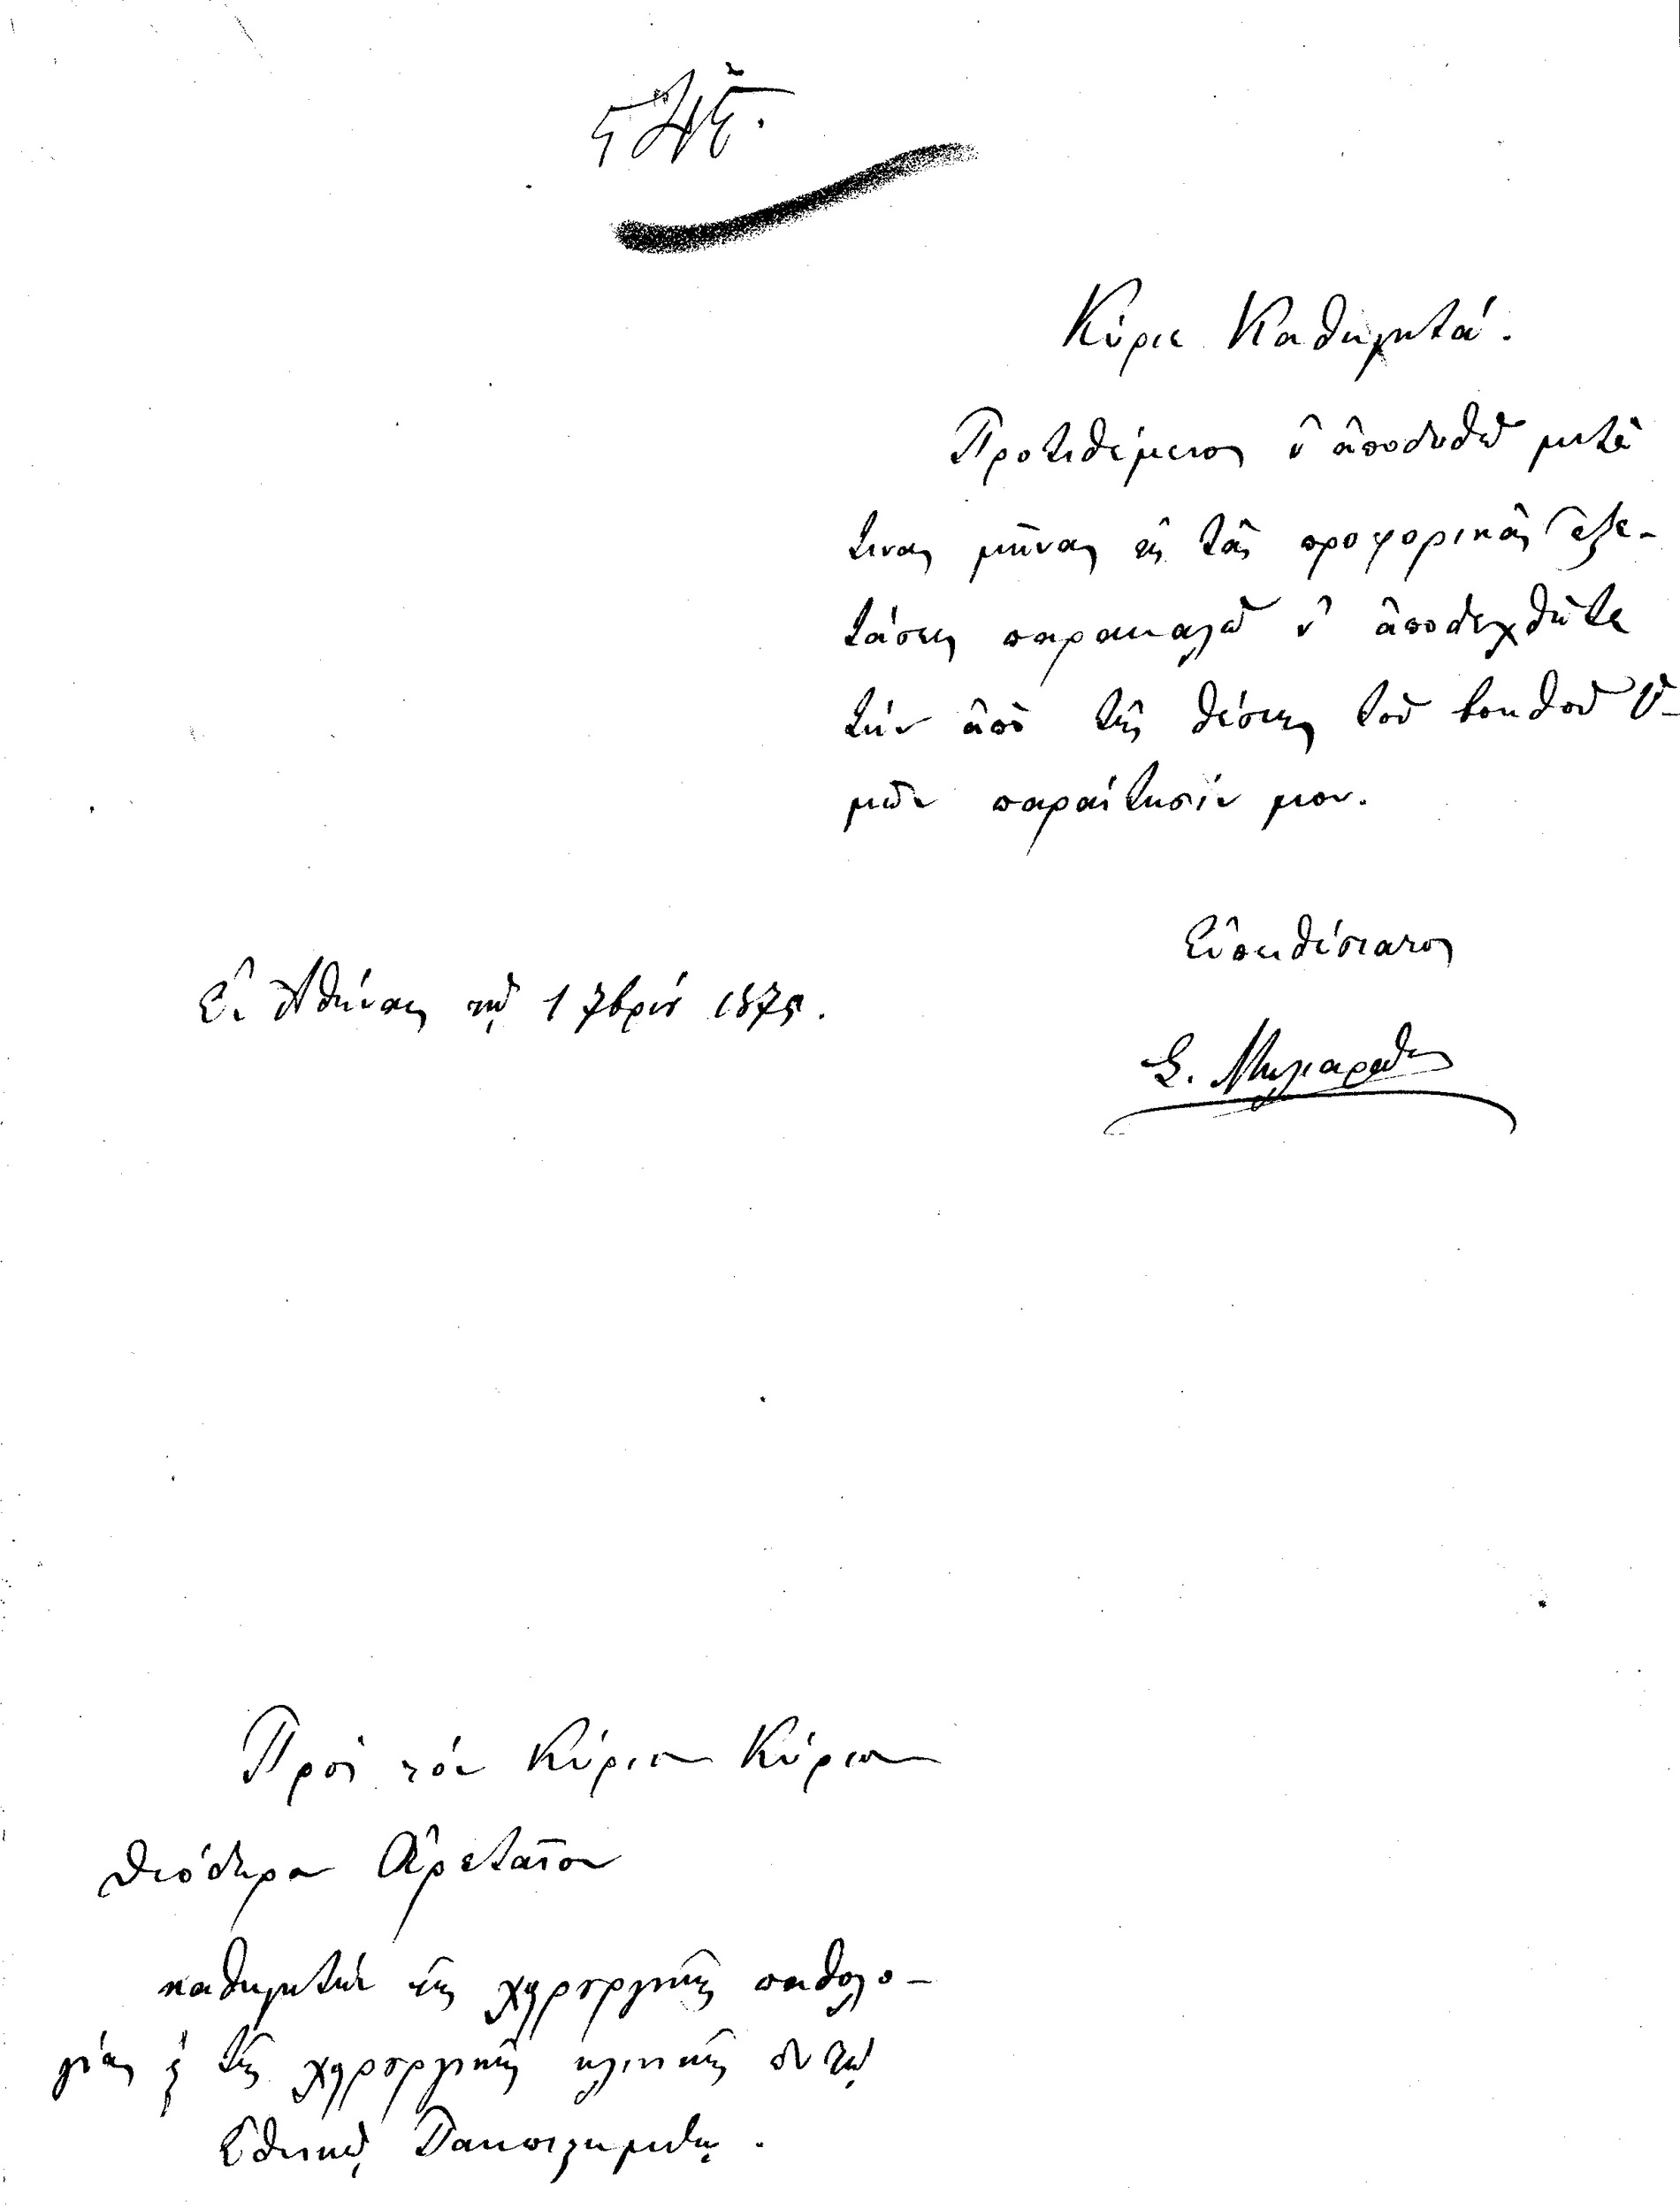 Κύριε Καθηγητά.
Προτιθέμενος ν' ἀποδυθῶ μετά
τινας μῆνας εἰς τὰς προφορικὰς ἐξε-
τάσεις παρακαλῶ ν' ἀποδεχθῆτε
τὴν ἀπὸ τῆς θέσεως τοῦ βοηθοῦ Ὑ-
μῶν παραίτησίν μου.
Εὐπειθέστατος
Ἐν Ἀθήναις τῇ 1 7βρίου 1875.
Σ. Μαγγιαρ
Πρὸς τὸν Κύριον Κύριον
Θεόδωρον Ἀρεταῖον
καθηγητὴν τῆς χειρουργικῆς παθολο-
γίας καὶ τῆς χειρουργικῆς κλινικῆς ἐν τῷ
Ἐθνικῷ Πανεπιστημίῳ.